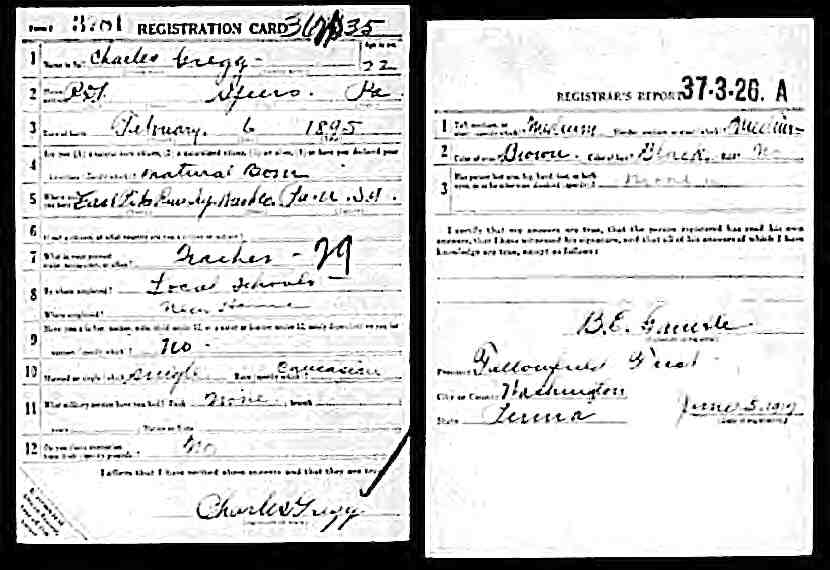 Form 1 3701 REGISTRATION CARD
1 Name in full Charles Gregg Age in yrs. 22
2 Home address Pa.
3 Date of birth February 6 1895
4 Are you (1) a natural born citizen, (2) a naturalized citizen, (3) an alien, (4) or have you declared your
intention (specify which)? natural Born
5 Where were you born? East Pike Run Twp. Wash Co. Penn.
6 If not a citizen, of what country are you a citizen or subject?
7 What is your present trade, occupation, or office? Teacher - 29
8 By whom employed? Local Schools
Where employed? Near Home
9 Have you a father, mother, wife, child under 12, or a sister or brother under 12, solely dependent on you for
support (specify which)? No
10 Married or single (which)? Single Race (specify which)? Caucasian
11 What military service have you had? Rank None branch
years Nation or State
12 Do you claim exemption from draft (specify grounds)? No
I affirm that I have verified above answers and that they are true.
Charles Gregg
REGISTRAR'S REPORT 37-3-26. A
1 Medium Medium
2 Color of eyes Brown Color of hair Black No
3 Has person lost arm, leg, hand, foot, or both
I certify that my answers are true, that the person registered has read his own
answers, that I have witnessed his signature, and that all of his answers of which I have
knowledge are true, except as follows:
B.E.
Precinct Fallowfield First
City or County Washington
State Penna June 5 1917